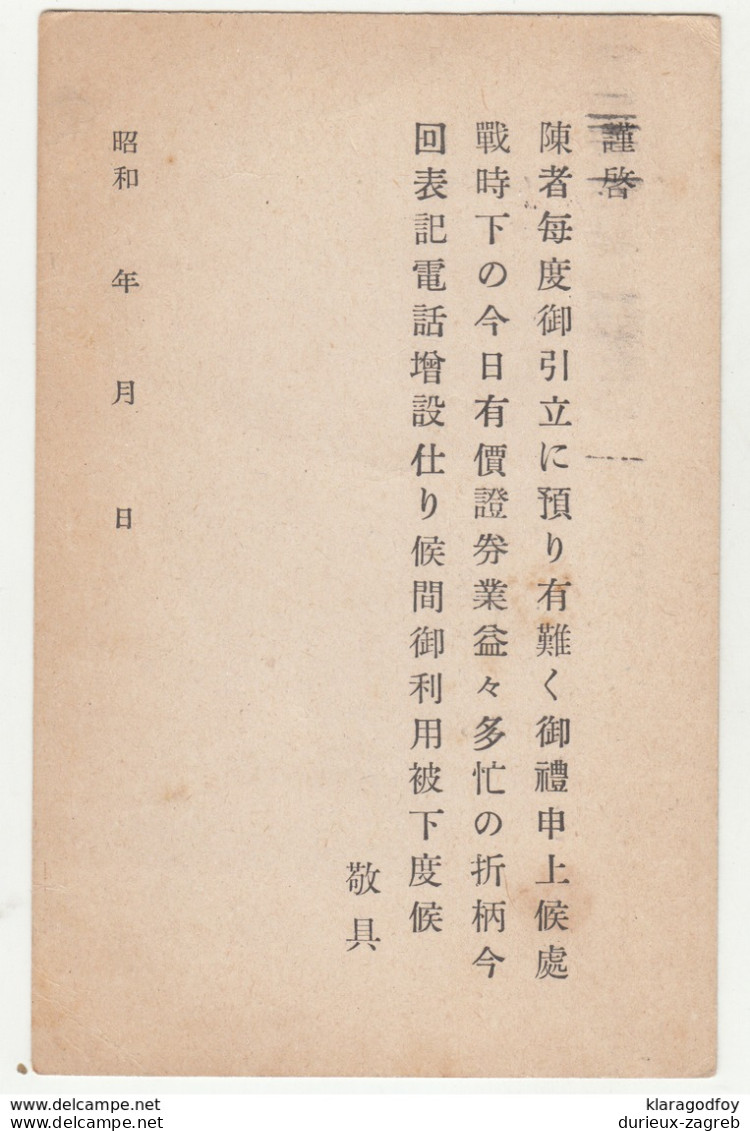 謹啓
陳者每度御引立に預り有難く御禮申上候處
戰時下の今日有價證券業益々多忙の折柄今
回表記電話增設仕り候間御利用被下度候
敬具
昭和　年　月　日
klaragodfoy
durieux-zagreb